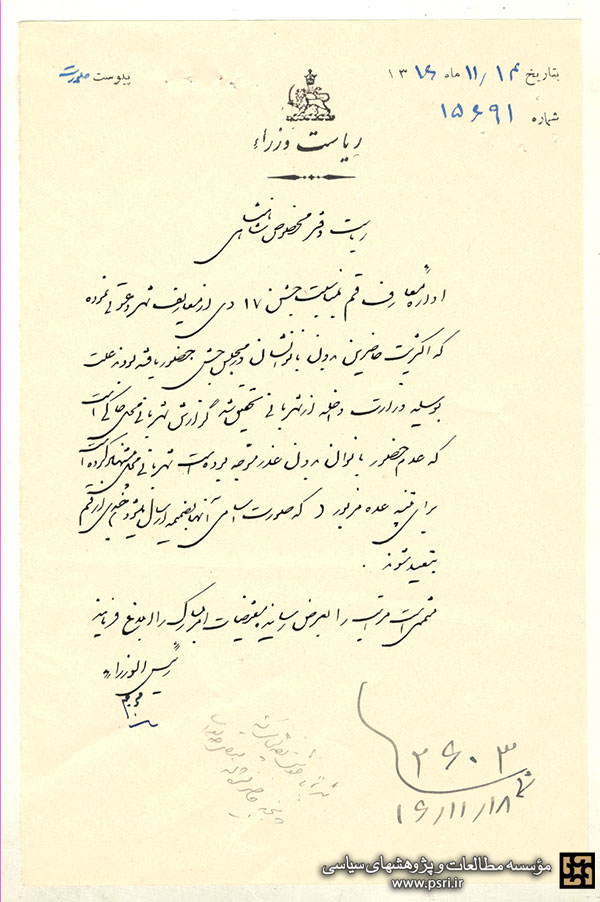 بتاریخ ۱۴ / ۱۱ ماه ۱۳۱۶
پیوست
شماره ۱۵۶۹۱
ریاست وزراء
ریاست دفتر مخصوص شاهنشاهی
اداره معارف قم بمناسبت جشن ۱۷ دی از معاریف شهر دعوتی نموده
که اکثریت حاضرین بدون بانوانشان در مجلس جشن حضور یافته بودند علت
بوسیله وزارت داخله از شهربانی تحقیق شد گزارش شهربانی محل حاکی است
که عدم حضور بانوان بدون عذر موجه بوده است شهربانی محل پیشنهاد کرده است
برای تنبیه عده مزبور (که صورت اسامی آنها بضمیمه ارسال میشود) از قم
تبعید شوند.
متمنی است مراتب را بعرض رسانیده مقتضیات امر مبارک را ابلاغ فرمایند
رئیس الوزراء
۲۶۰۳
۱۶/۱۱/۱۸
مؤسسه مطالعات و پژوهشهای سیاسی
www.psri.ir